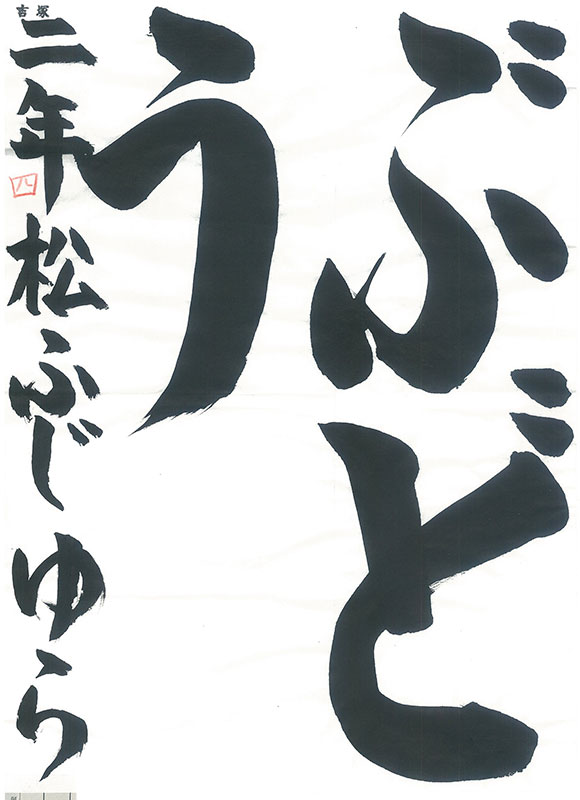 ぶど
う
二年 松ふじ ゆら
四
吉塚